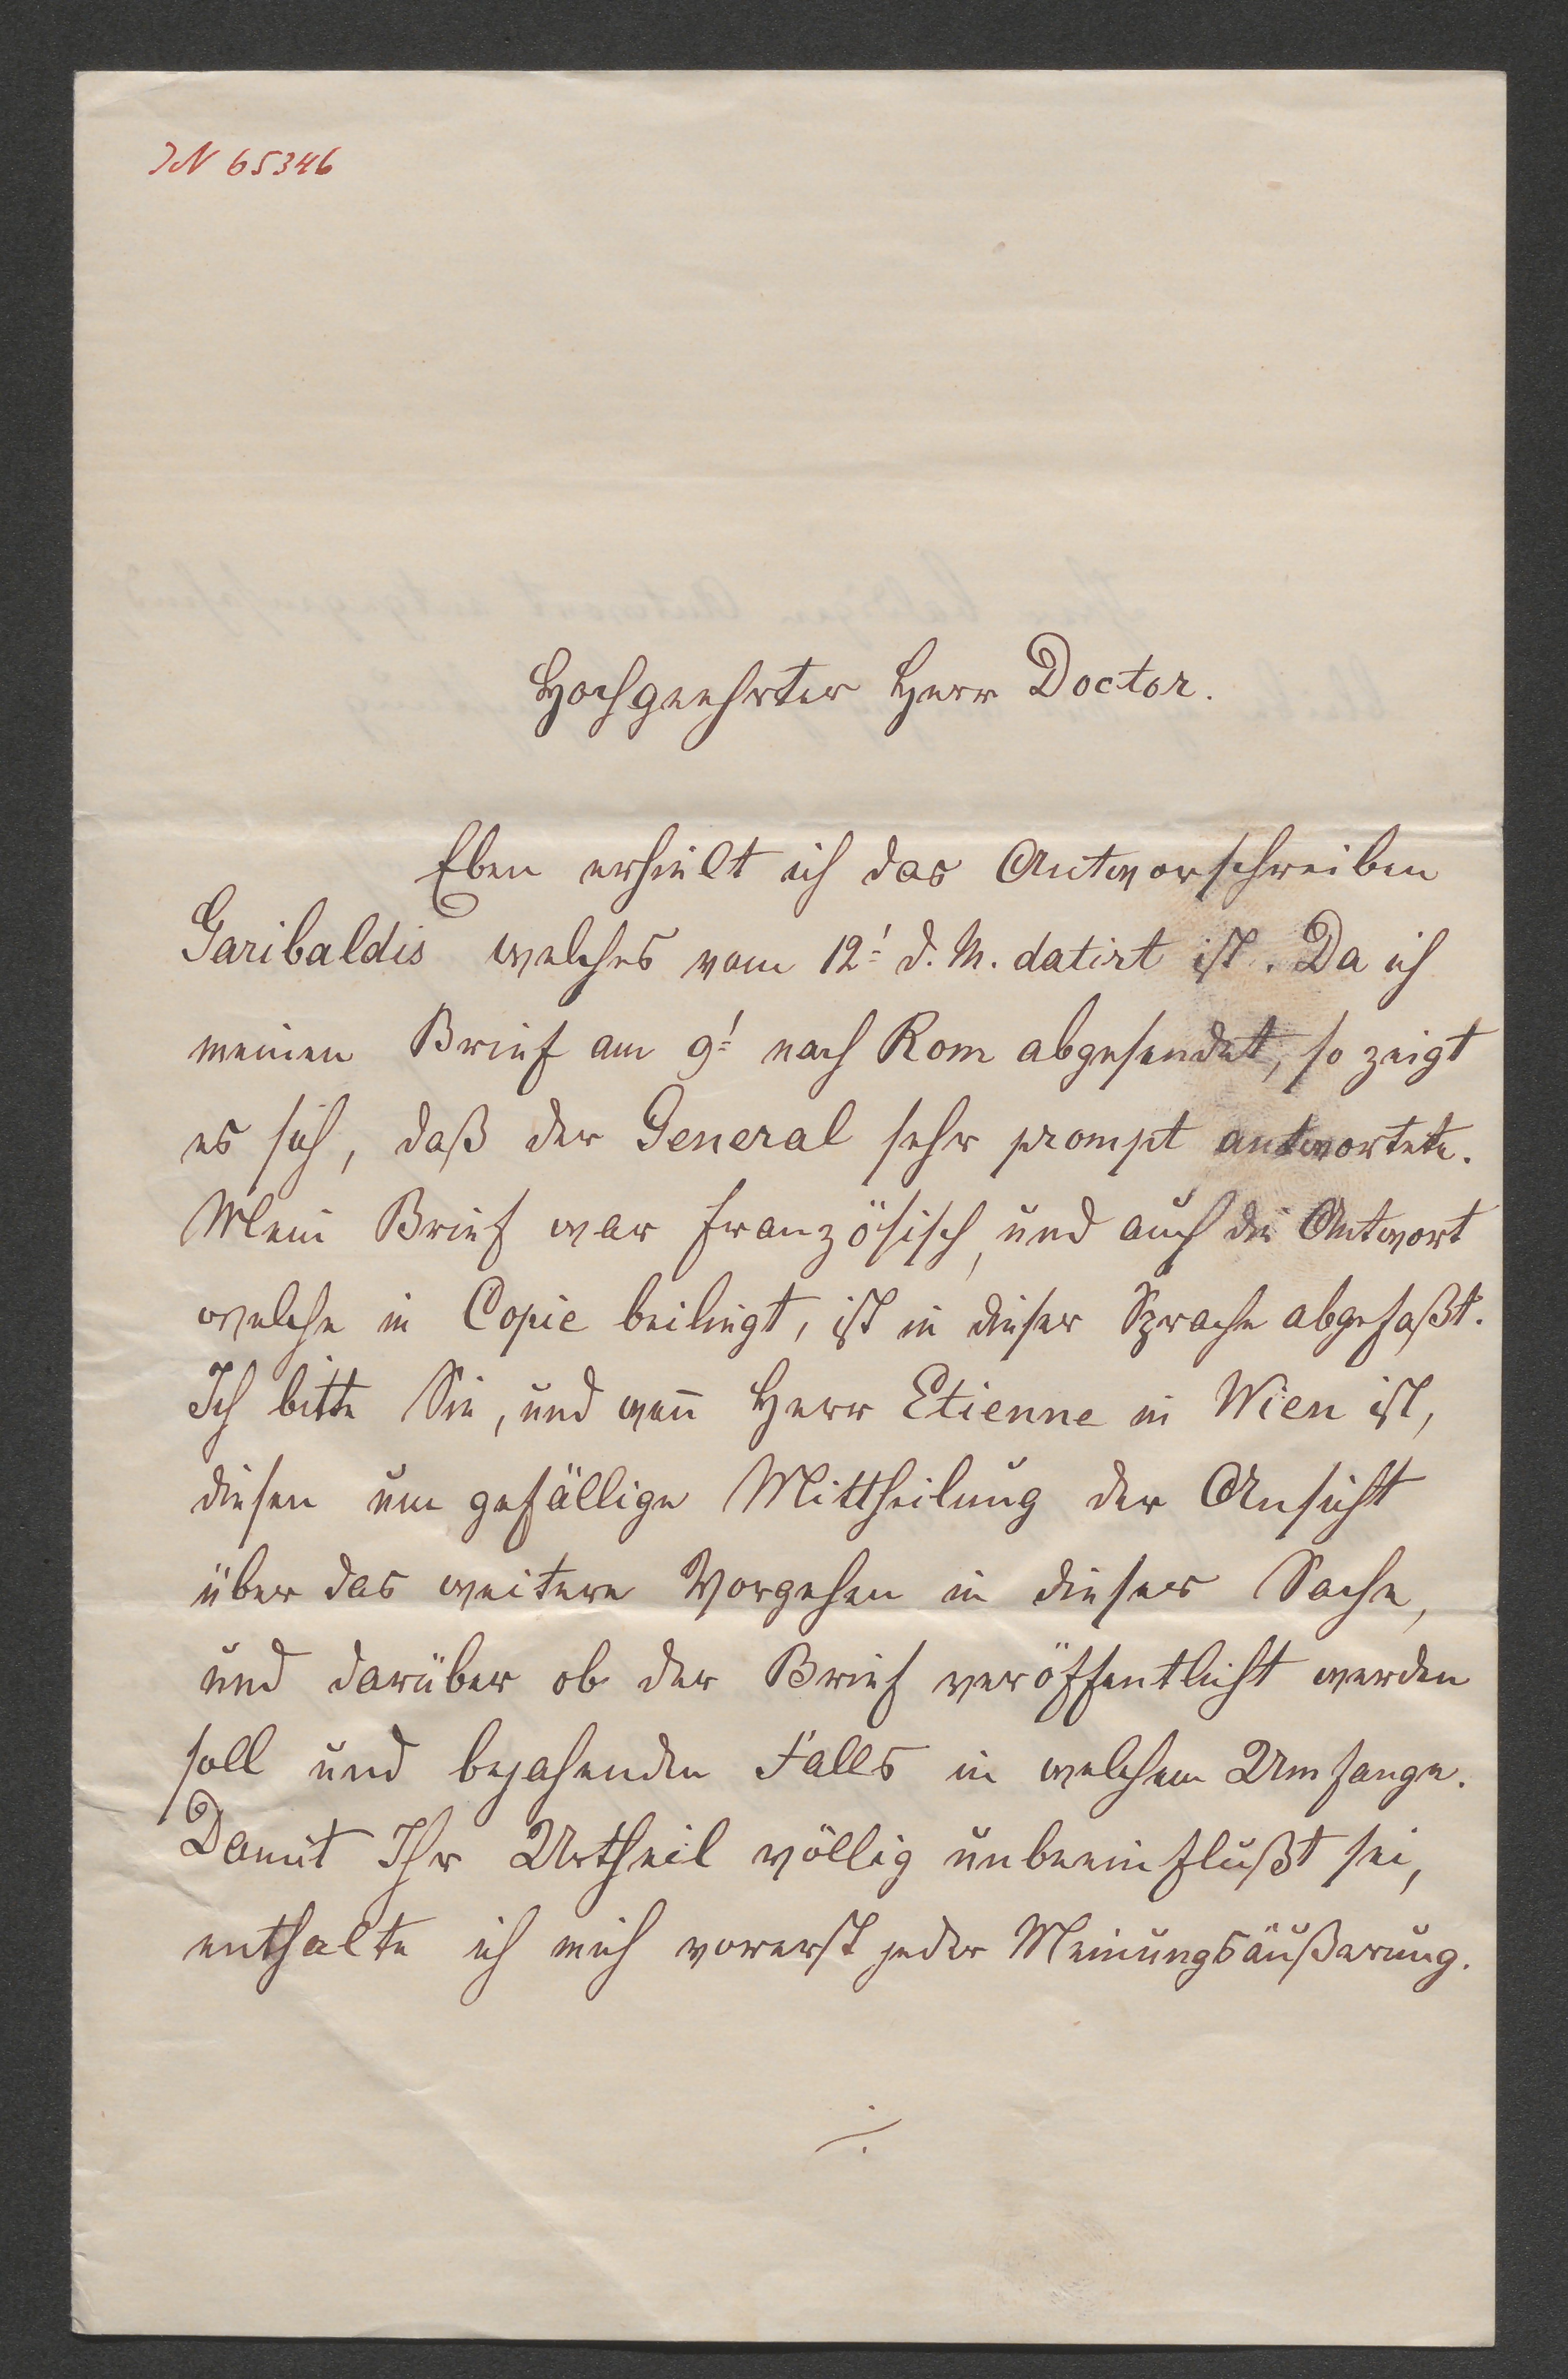 IN 65346
Hochgeehrter Herr Doctor.
Eben erhielt ich das Antworschreiben
Garibaldis welches vom 12t d. M. datirt ist. Da ich
meinen Brief am 9t nach Rom abgesendet, so zeigt
es sich, daß der General sehr prompt antwortete.
Mein Brief war französisch, und auch die Antwort
welche in Copie beiliegt, ist in dieser Sprache abgefaßt.
Ich bitte Sie, und wen̅ Herr Etienne in Wien ist,
diesen um gefällige Mittheilung der Ansicht
über das weitere Vorgehen in dieser Sache,
und darüber ob der Brief veröffentlicht werden
soll und bejahenden Falls in welchem Umfange.
Damit Ihr Urtheil völlig unbeeinflußt sei,
enthalte ich mich vorerst jeder Meinungsäußerung.
./.